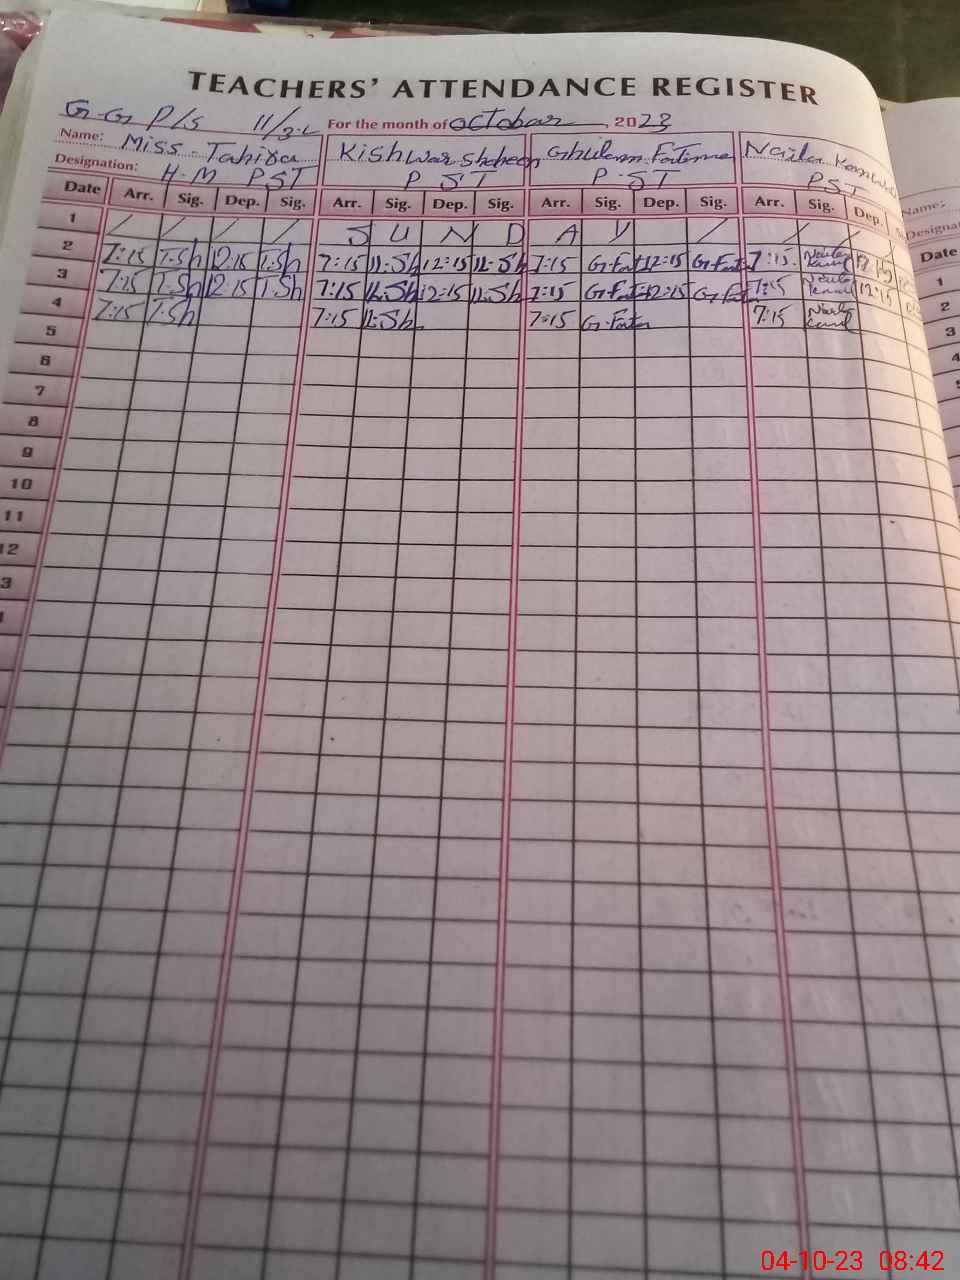 TEACHERS' ATTENDANCE REGISTER
G.G P/S 11/3-L For the month of octobar, 2023
Name: Miss. Tahira Kishwar Shaheen Ghulam Fatima Naila
Designation: H.M PST PST P.ST PST
Date Arr. Sig. Dep. Sig. Arr. Sig. Dep. Sig. Arr. Sig. Dep. Sig. Arr. Sig. Dep.
1 / / / / S U N D A Y / / / /
2 7:15 T.Sh 12:15 T.Sh 7:15 K.Sh 12:15 K.Sh 7:15 G.Fat 12:15 G.Fat 7:15 12:15
3 7:15 T.Sh 12:15 T.Sh 7:15 K.Sh 12:15 K.Sh 7:15 G.Fat 12:15 G.Fat 7:15 12:15
4 7:15 T.Sh 7:15 K.Sh 7:15 G.Fat 7:15
5
6
7
8
9
10
11
12
3
Name:
Designa
Date
1
2
3
4
04-10-23 08:42